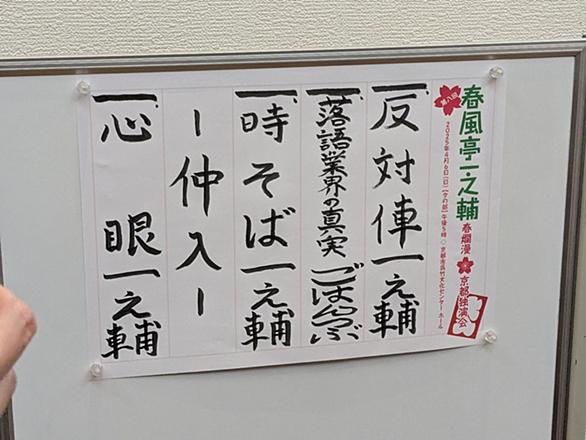 第八回
春風亭一之輔 春爛漫 京都独演会
2025年4月6日(日)【夕の部】午後5時 ◇ 京都市呉竹文化センターホール
一、反対俥 一之輔
一、落語業界の真実 ごはんつぶ
一、時そば 一之輔
ー仲入ー
一、心眼 一之輔